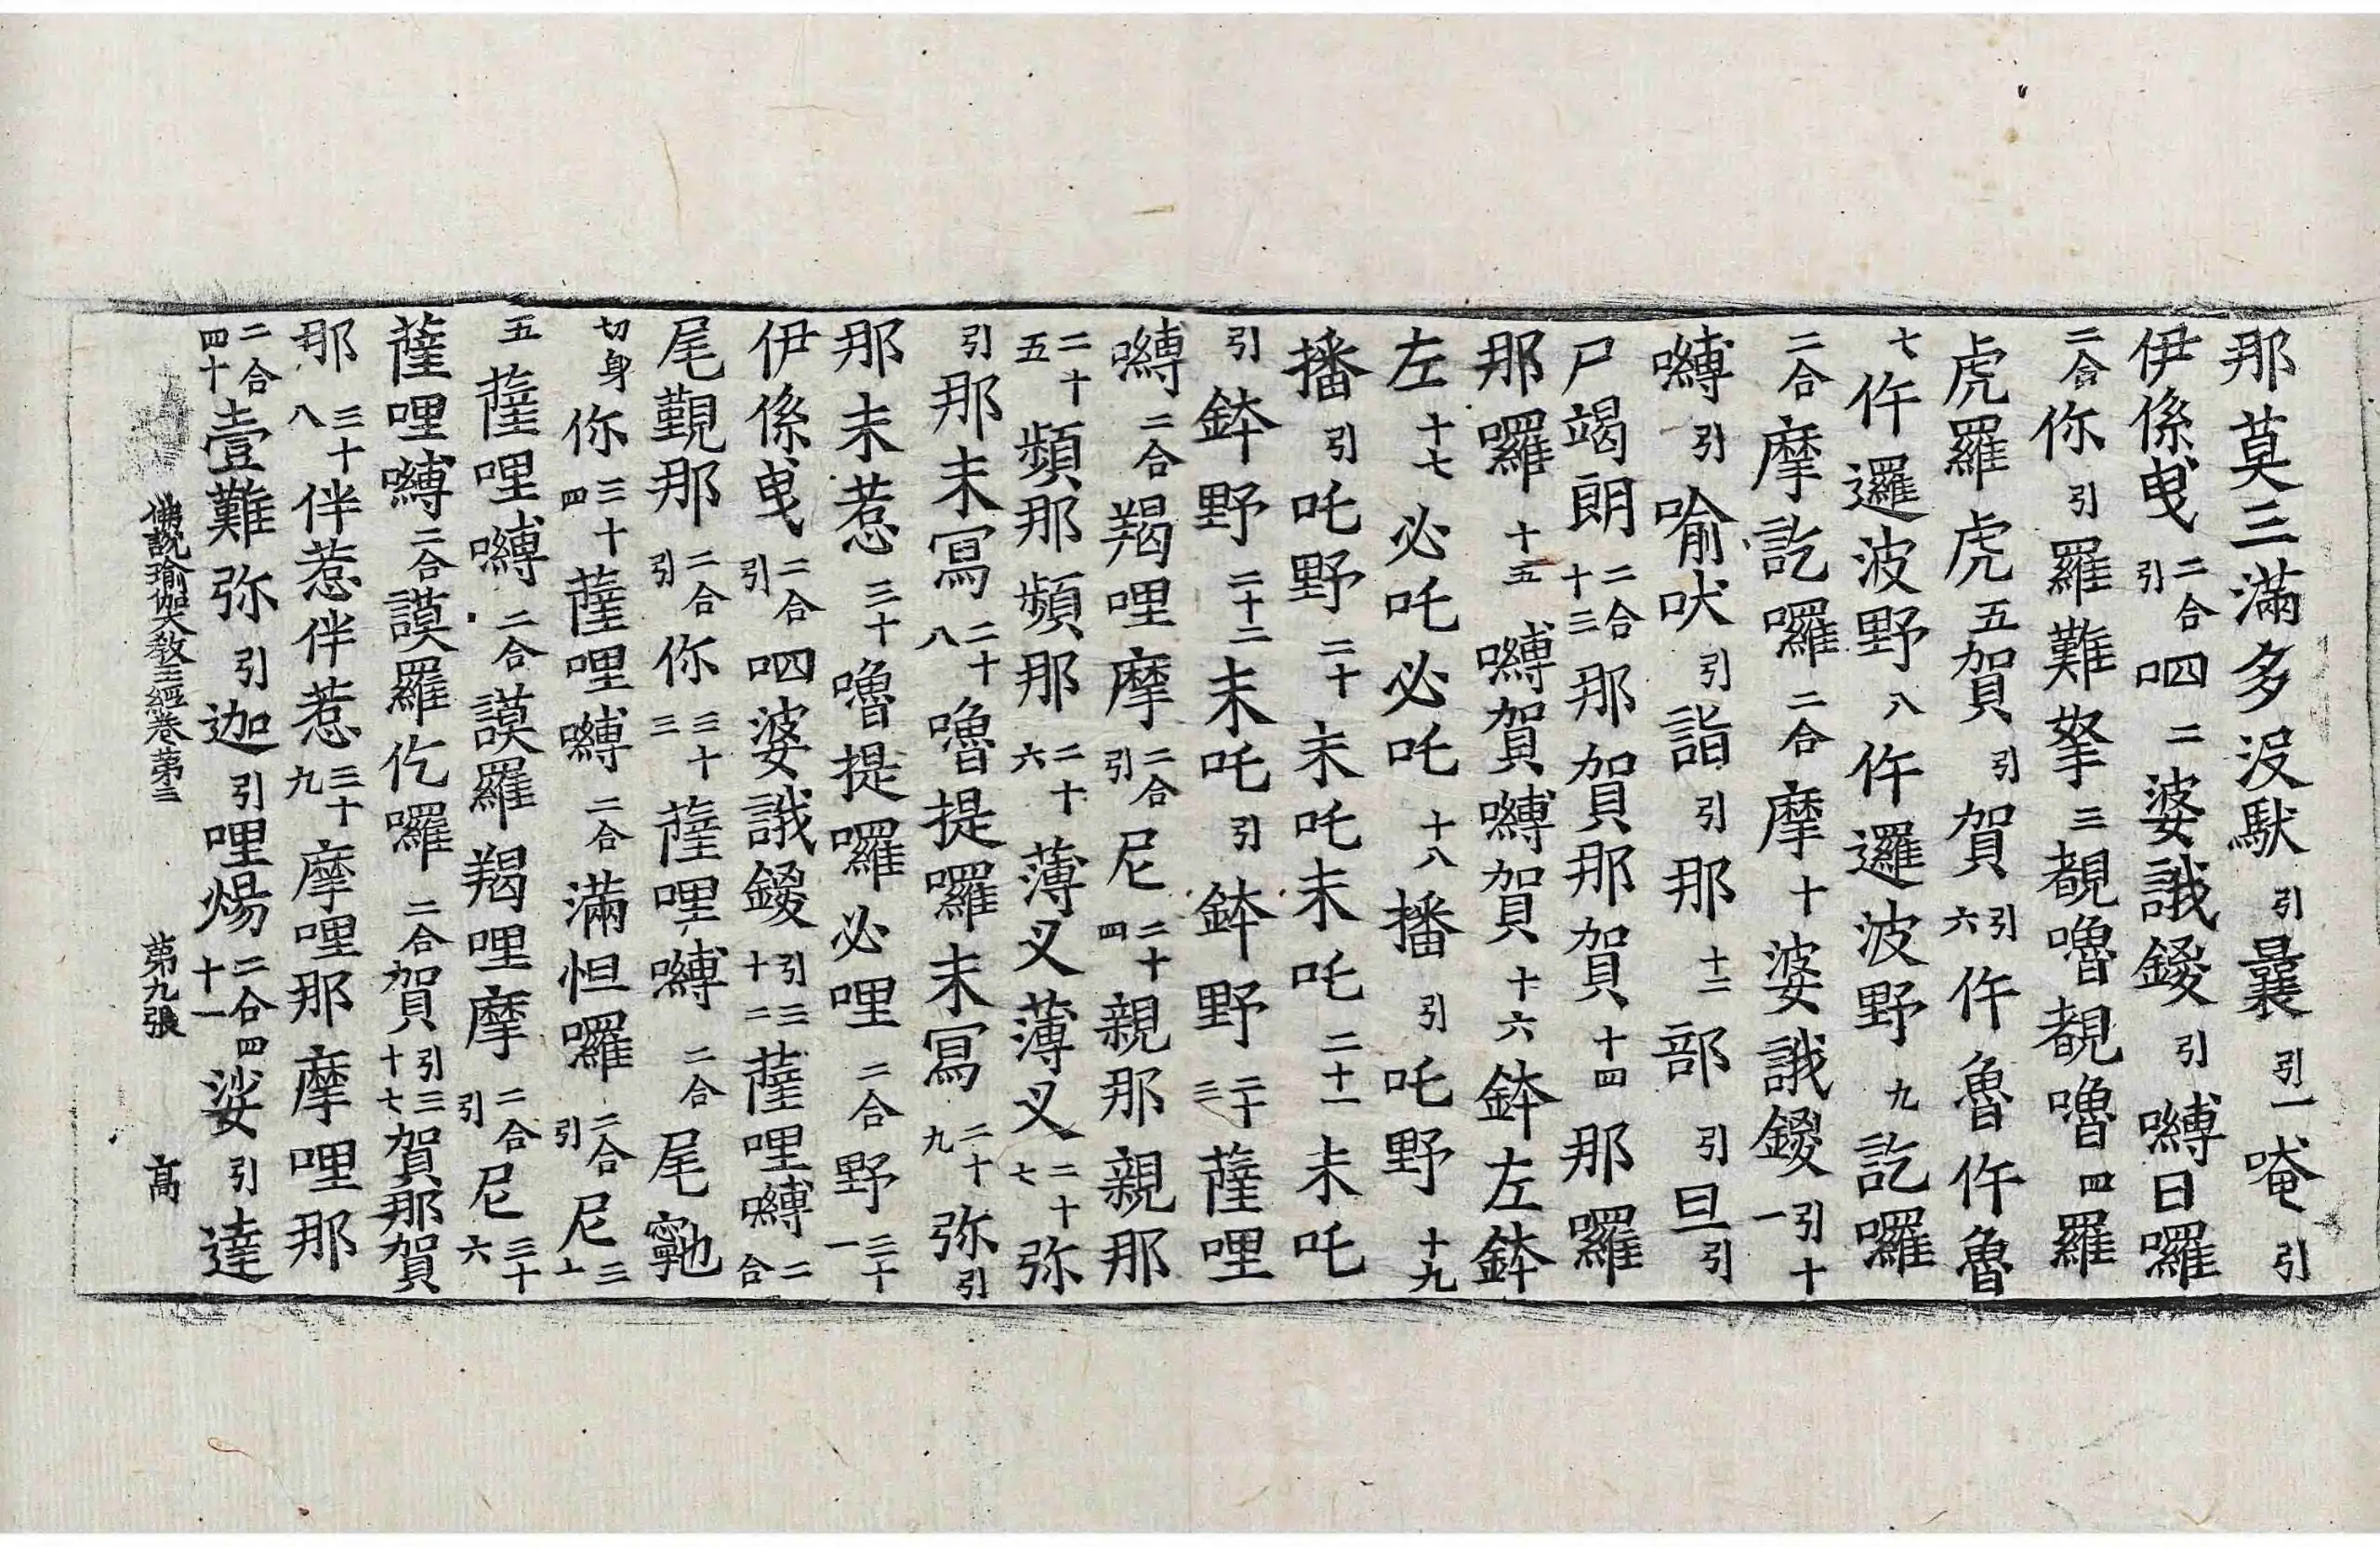 那莫三滿多没馱引曩引一唵引
伊係曳二合引呬二婆誐鍐引嚩日囉
二合你引羅難拏三覩嚕覩嚕四羅
虎羅虎五賀引賀引六仵魯仵魯
七仵邏波野八仵邏波野九訖囉
二合摩訖囉二合摩十婆誐鍐引十一
嚩引喻吠引詣引那十二部引旦引
尸竭朗二合十三那賀那賀十四那囉
那囉十五嚩賀嚩賀十六鉢左鉢
左十七必吒必吒十八播引吒野十九
播引吒野二十末吒末吒二十一末吒
引鉢野二十二末吒引鉢野二十三薩哩
嚩二合羯哩摩二合引尼二十四親那親那
二十五頻那頻那二十六薄叉薄叉二十七弥
引那末冩二十八嚕提囉末冩二十九弥引
那末惹三十嚕提囉必哩二合野三十一
伊係曳二合引呬婆誐鍐引三十二薩哩嚩二合
尾覲那二合引你三十三薩哩嚩二合尾
切身你三十四薩哩嚩二合滿怛囉二合引尼三十
五薩哩嚩二合謨羅羯哩摩二合引尼三十六
薩哩嚩二合謨羅仡囉二合賀引三十七賀那賀
那三十八伴惹伴惹三十九摩哩那摩哩那
二合四十壹難弥引迦引哩煬二合四十一娑引達
佛說瑜伽大教王經卷第三 第九張 髙